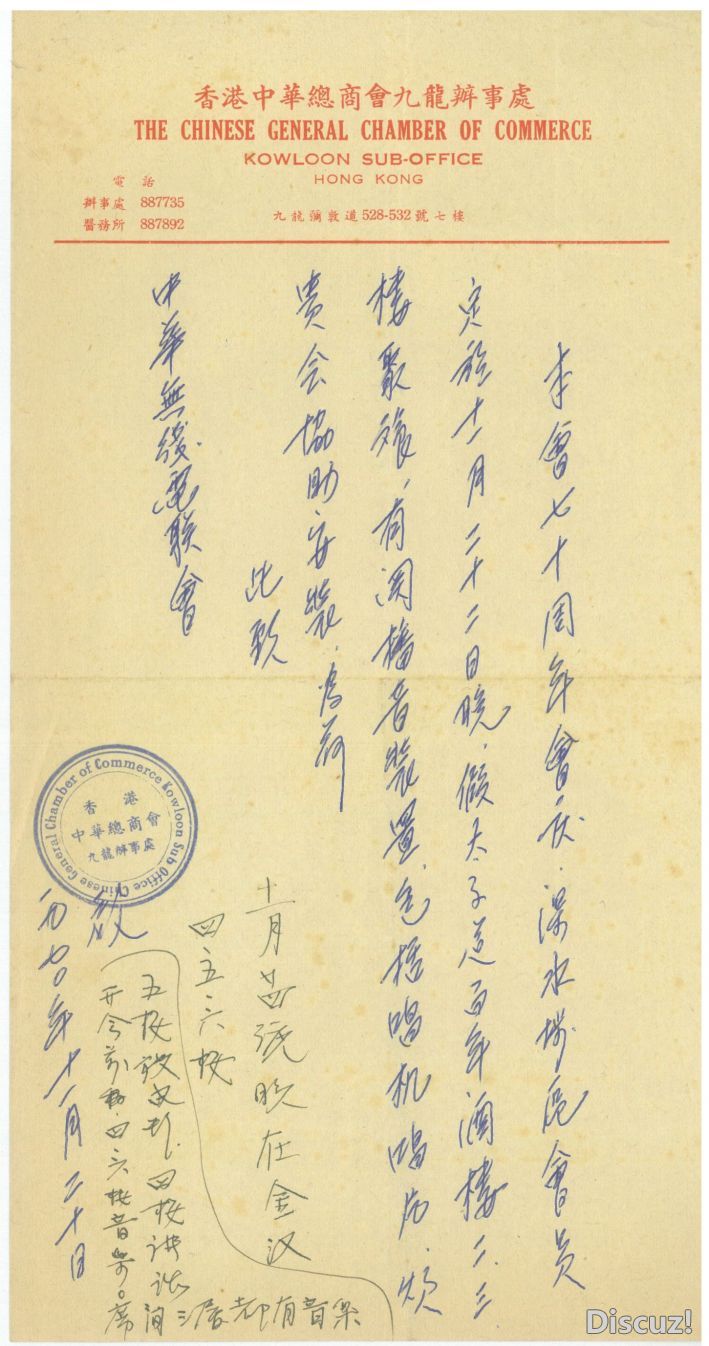 香港中華總商會九龍辦事處
THE CHINESE GENERAL CHAMBER OF COMMERCE
KOWLOON SUB-OFFICE
HONG KONG
電話
辦事處 887735
醫務所 887892
九龍彌敦道528-532號七樓
本會七十周年會慶.深水埗區會員
定於十一月二十二日晚.假太子道百年酒樓二.三
樓聚餐,有関播音裝置,包括唱机唱片.煩
貴会協助安裝.為荷
此致
中華無线電联會
Chinese General Chamber of Commerce Kowloon Sub Office
香港
中華總商會
九龍辦事處
啟
一九七〇年十一月二十日
十一月廿四號晚在金汉
四五.六楼
五楼放电影.四楼讲话
开会前奏四六楼音乐。席间三层都有音乐
Discuz!